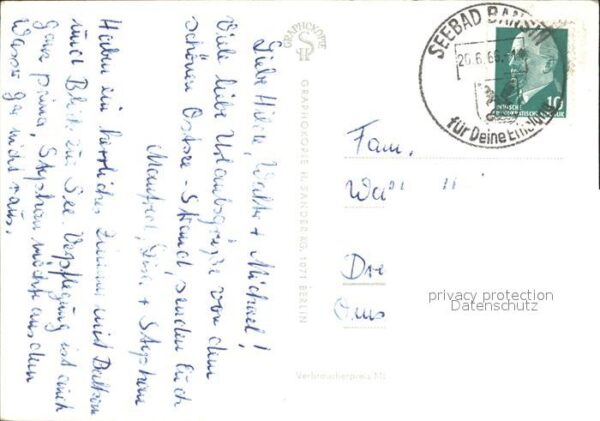 Liebe Hilde, Walter + Michael!
Viele liebe Urlaubsgrüße von dem
schönen Ostsee-Strand, senden Euch
Manfred, + Stephan
Haben ein herrliches Zimmer mit Balkon
und Blick zur See. Verpflegung ist auch
ganz prima, Stephan möchte aus dem
Wasser gar nicht raus.
GRAPHOKOPIE
GRAPHOKOPIE H. SANDER KG, 1071 BERLIN
Verbraucherpreis M
SEEBAD BANSIN
für Deine
10
Fam.
privacy protection
Datenschutz